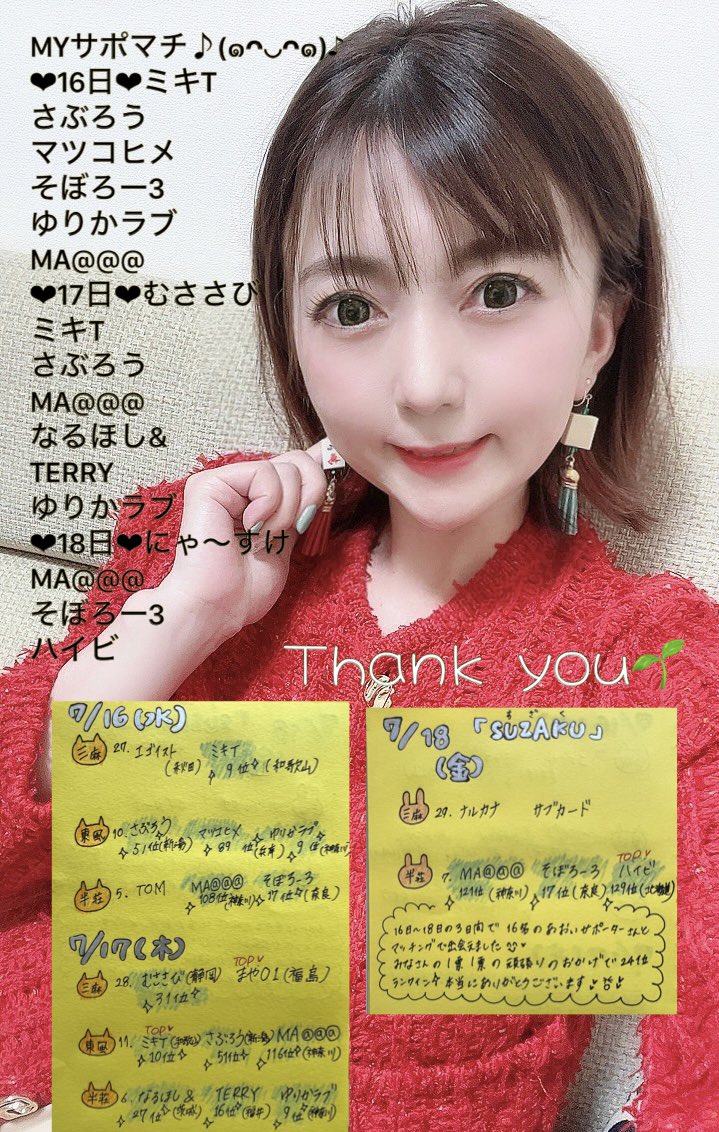 MYサポマチ♪(๑ᴖ◡ᴖ๑)♪
❤16日❤ミキT
さぶろう
マツコヒメ
そぼろー3
ゆりかラブ
MA@@@
❤17日❤むささび
ミキT
さぶろう
MA@@@
なるほし&
TERRY
ゆりかラブ
❤18日❤にゃ〜すけ
MA@@@
そぼろー3
ハイビ
Thank you🌱
7/16(水)
三麻 27. エゴイスト ミキT
(秋田) 9位 (和歌山)
東風 10. さぶろう マツコヒメ ゆりかラブ
51位(新潟) 89位(兵庫) 9位(神奈川)
半荘 5. TOM MA@@@ そぼろー3
108位(神奈川) 17位(奈良)
7/17(木)
TOP♥
三麻 28. むささび(静岡) まや01(福島)
31位
TOP♥
東風 11. ミキT(和歌山) さぶろう(新潟) MA@@@
10位 51位 116位(神奈川)
半荘 6. なるほし& TERRY ゆりかラブ
27位(茨城) 16位(福井) 9位(神奈川)
すざく
7/18「SUZAKU」
(金)
三麻 29. ナルカナ サブカード
TOP♥
半荘 7. MA@@@ そぼろー3 ハイビ
121位(神奈川) 17位(奈良) 129位(北海道)
16日〜18日の3日間で 16名のあおいサポーターさんと
マッチングで出会えました
みなさんの1票1票の頑張りのおかげで24位
ランクイン 本当にありがとうございます